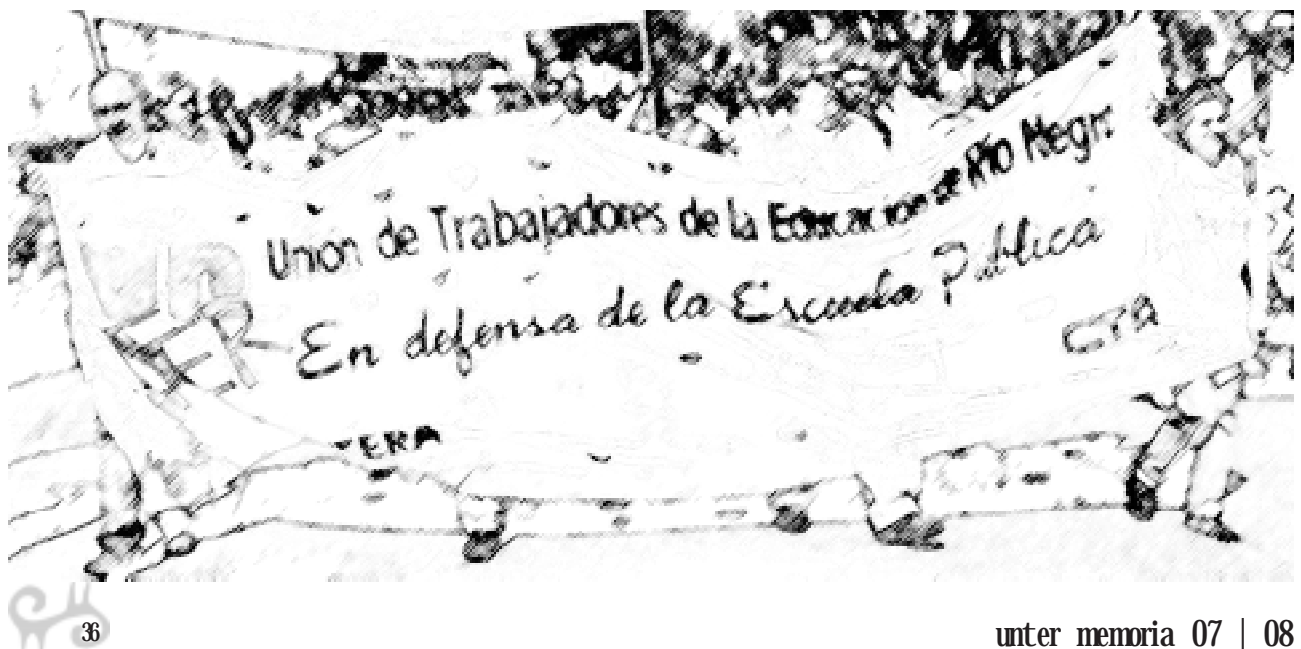 Union de Trabajadores de la Educacion de Rio Negro
En defensa de la Escuela Pública
UnTER
CTA
CTERA
36
unter memoria 07 | 08